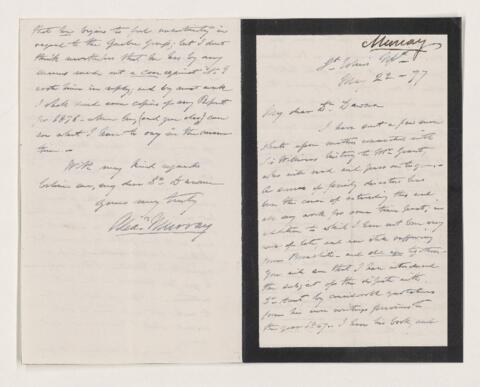 that he begins to feel uncertainty in
regard to the Quebec Group; but I don't
think nevertheless that he has by any
means made out a case against it. I
wrote him in reply; and by next week
I shall send some copies of my Report
for 1876. when he (and you also) can
see what I have to say in the mean
time.—
With my kind regards
believe me, my dear Dr. Dawson
Yours very truly
Alexr. Murray
Murray
St. John's Nfd
May 22 – 77
My dear Dr. Dawson
I have sent a few more
sheets upon matters connected with
Sir William's history to Mr. Grant,
who will read and pass on to you.—
A series of family disasters has
been the cause of retarding this and
all my work for some time past, in
addition to which I have not been very
well of late, and am still suffering
from Bronchitis – and old age together.—
You will see that I have introduced
the subject of the dispute with
Dr. Hunt, by considerable quotations
from his own writings previous to
the year 1867. I have his book, and